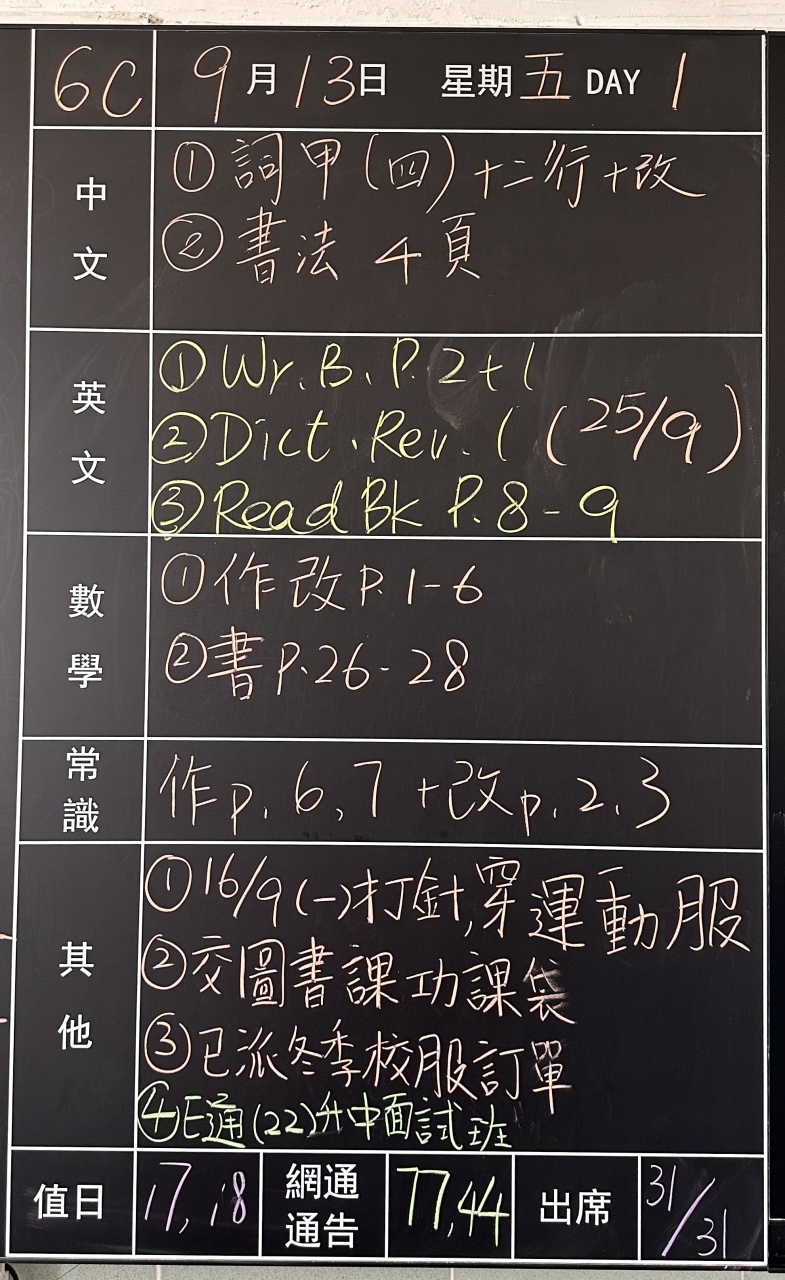 6C 9月13日 星期五 DAY 1
中文
① 詞甲(四)十二行+改
② 書法 4頁
英文
① Wr. B. P. 2+1
② Dict. Rev. 1 (25/9)
③ Read Bk P. 8-9
數學
① 作改 P. 1-6
② 書 P. 26-28
常識
作 p. 6, 7 +改 p. 2, 3
其他
① 16/9(一)打針,穿運動服
② 交圖書課功課袋
③ 已派冬季校服訂單
④ E通(22)升中面試班
值日 17, 18 網通通告 77, 44 出席 31/31